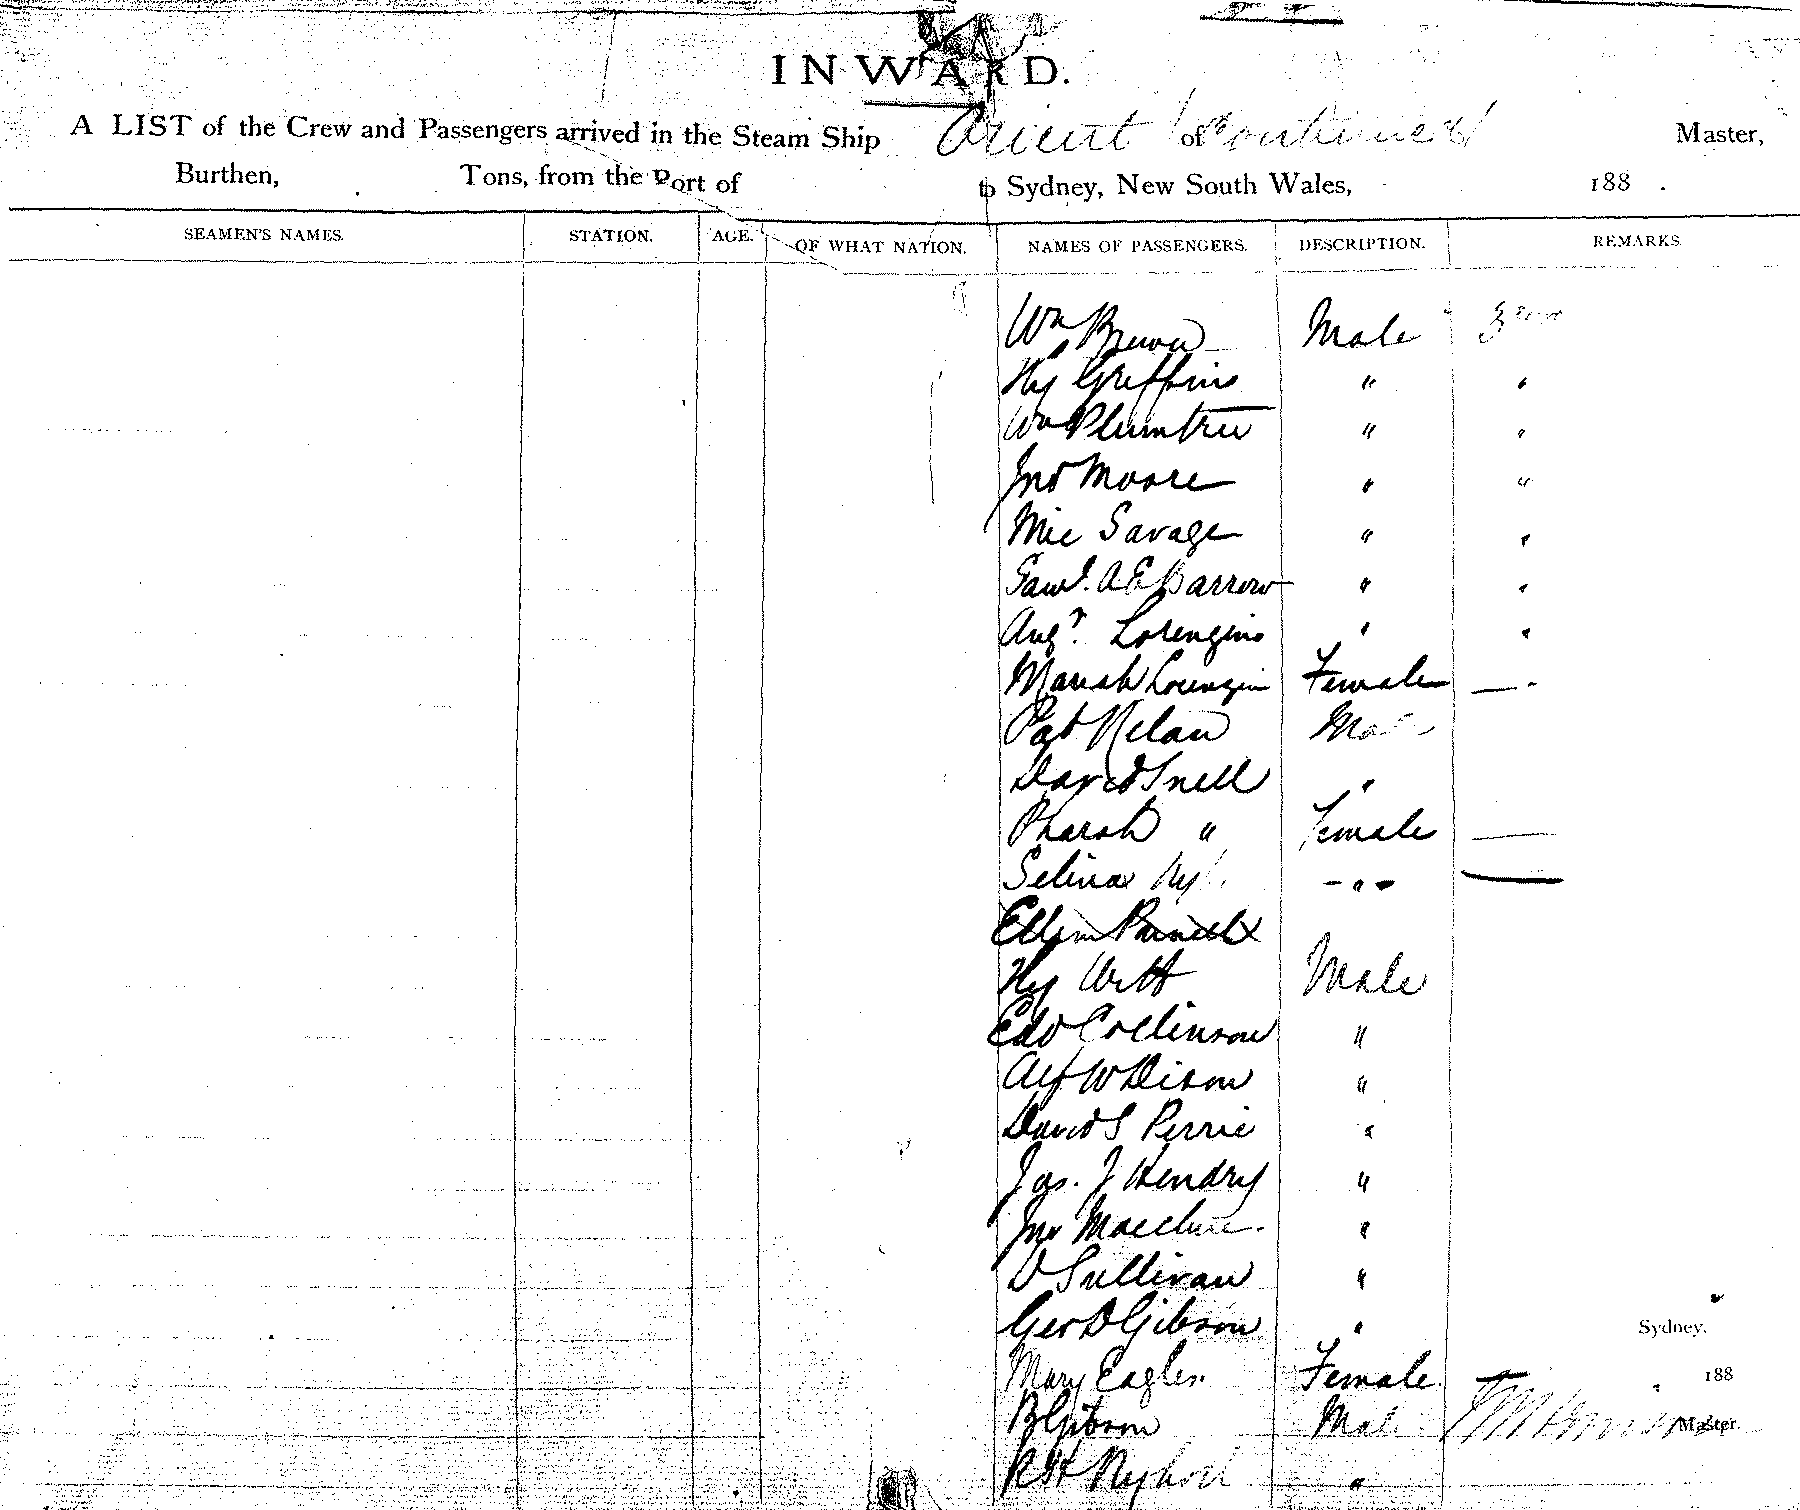 INWARD.
A LIST of the Crew and Passengers arrived in the Steam Ship Orient of Continued Master,
Burthen, Tons, from the Port of to Sydney, New South Wales, 188 .
SEAMEN'S NAMES. STATION. AGE. OF WHAT NATION. NAMES OF PASSENGERS. DESCRIPTION. REMARKS.
Wm Brown Male
Hy Griffins " "
Wm Plumtree " "
Jno Moore " "
Mic Savage " "
Saml. A E Barrow " "
Augt. Lorengins " "
Mariah Lorengin Female —"
Pat Nelan
David Snell "
Pharah " Female —
Selina -"- —
Ellen
Hy Witt Male
Edw Collinson "
Alf W Dixon "
David S Perrie "
Jas. J Hendry "
Jno Macclure "
D Sullivan "
Geo D Gibson " Sydney,
Mary Eagles Female 188
B Gibson Male Master.
R H "